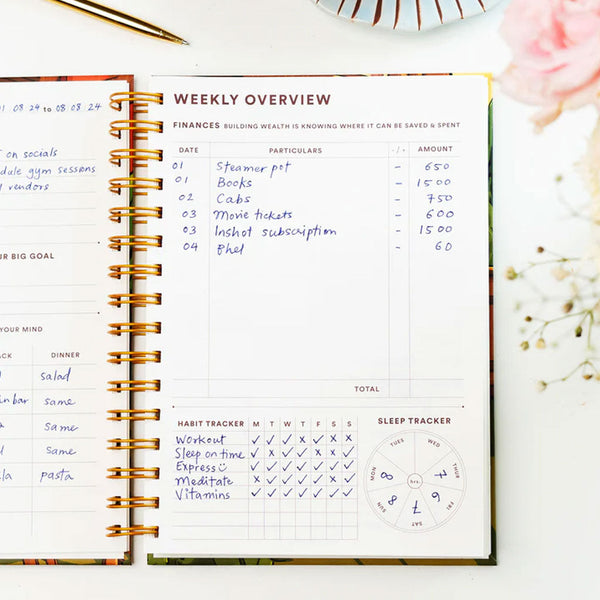 01 08 24 to 08 08 24
on socials
gym sessions
vendors
BIG GOAL
YOUR MIND
DINNER
salad
bar same
same
same
pasta
WEEKLY OVERVIEW
FINANCES BUILDING WEALTH IS KNOWING WHERE IT CAN BE SAVED & SPENT
DATE PARTICULARS -/+ AMOUNT
01 Steamer pot - 650
01 Books - 1500
02 Cabs - 750
03 Movie tickets - 600
03 Inshot subscription - 1500
04 Bhel - 60
TOTAL
HABIT TRACKER M T W T F S S
Workout ✓ ✓ ✓ x ✓ x x
Sleep on time ✓ x ✓ ✓ x x ✓
Express ✓ ✓ ✓ ✓ ✓ ✓ ✓
Meditate x ✓ ✓ ✓ ✓ x ✓
Vitamins ✓ ✓ ✓ ✓ ✓ ✓ ✓
SLEEP TRACKER
TUES WED
MON THUR
8 7
hrs.
8 7 6
SUN FRI
SAT